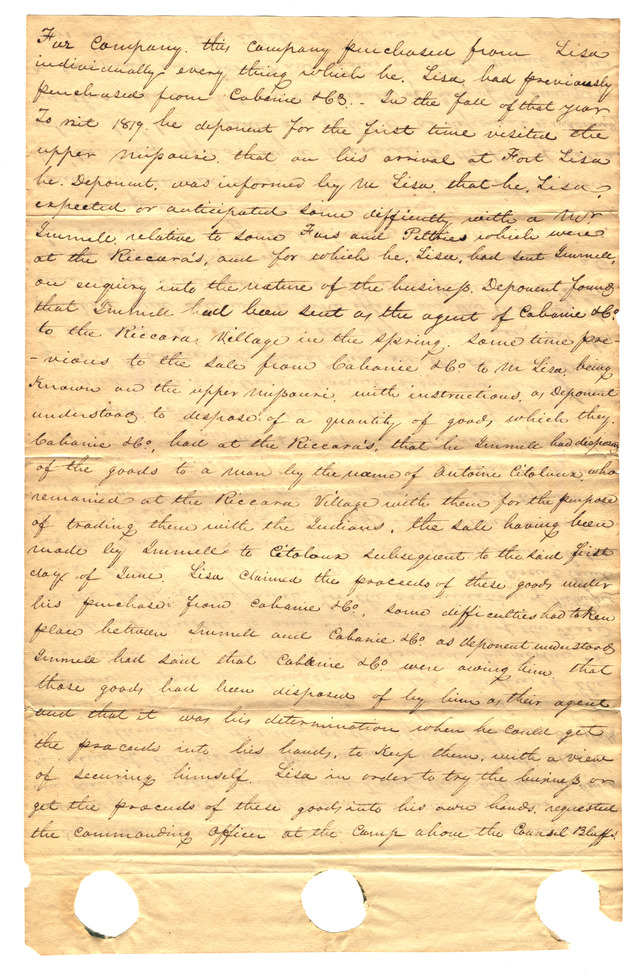 Fur Company. this company purchased from Lisa
individually every thing which he. Lisa had previously
purchased from Cabanie &Co. - In the fall of that year
To wit 1819. he deponent for the first time visited the
upper Missouri. that on his arrival at Fort Lisa
he. Deponent, was informed by M Lisa, that he, Lisa,
expected or anticipated some difficulty with a Mr
Immell, relative to some Furs and Peltries which were
at the Riccara's, and for which he, Lisa, had sent Immell,
on enquiry into the nature of the business. Deponent found
that Immell had been sent as the agent of Cabanie &Co
to the Riccara Village in the spring. some time pre-
-vious to the sale from Cabanie &Co to M Lisa being
Known on the upper missouri, with instructions, as Deponent
understood to dispose of a quantity of goods which they.
Cabanie &Co, had at the Riccara's, that he Immell had disposed
of the goods to a man by the name of Antoine Citoloux, who
remained at the Riccara Village with them for the purpose
of trading them with the Indians, the sale having been
made by Immell to Citoloux subsequent to the said first
day of June. Lisa claimed the proceeds of these goods under
his purchase from Cabanie &Co, some difficulties had taken
place between Immell and Cabanie &Co as deponent understood
Immell had said that Cabanie &Co were owing him that
those goods had been disposed of by him as their agent
and that it was his determination when he could get
the proceeds into his hands, to Keep them, with a view
of securing himself. Lisa in order to try the business or
get the proceeds of these goods into his own hands, requested
the commanding Officer at the Camp above the Council Bluffs.